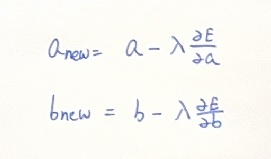 a new = a - λ ∂E/∂a
b new = b - λ ∂E/∂b